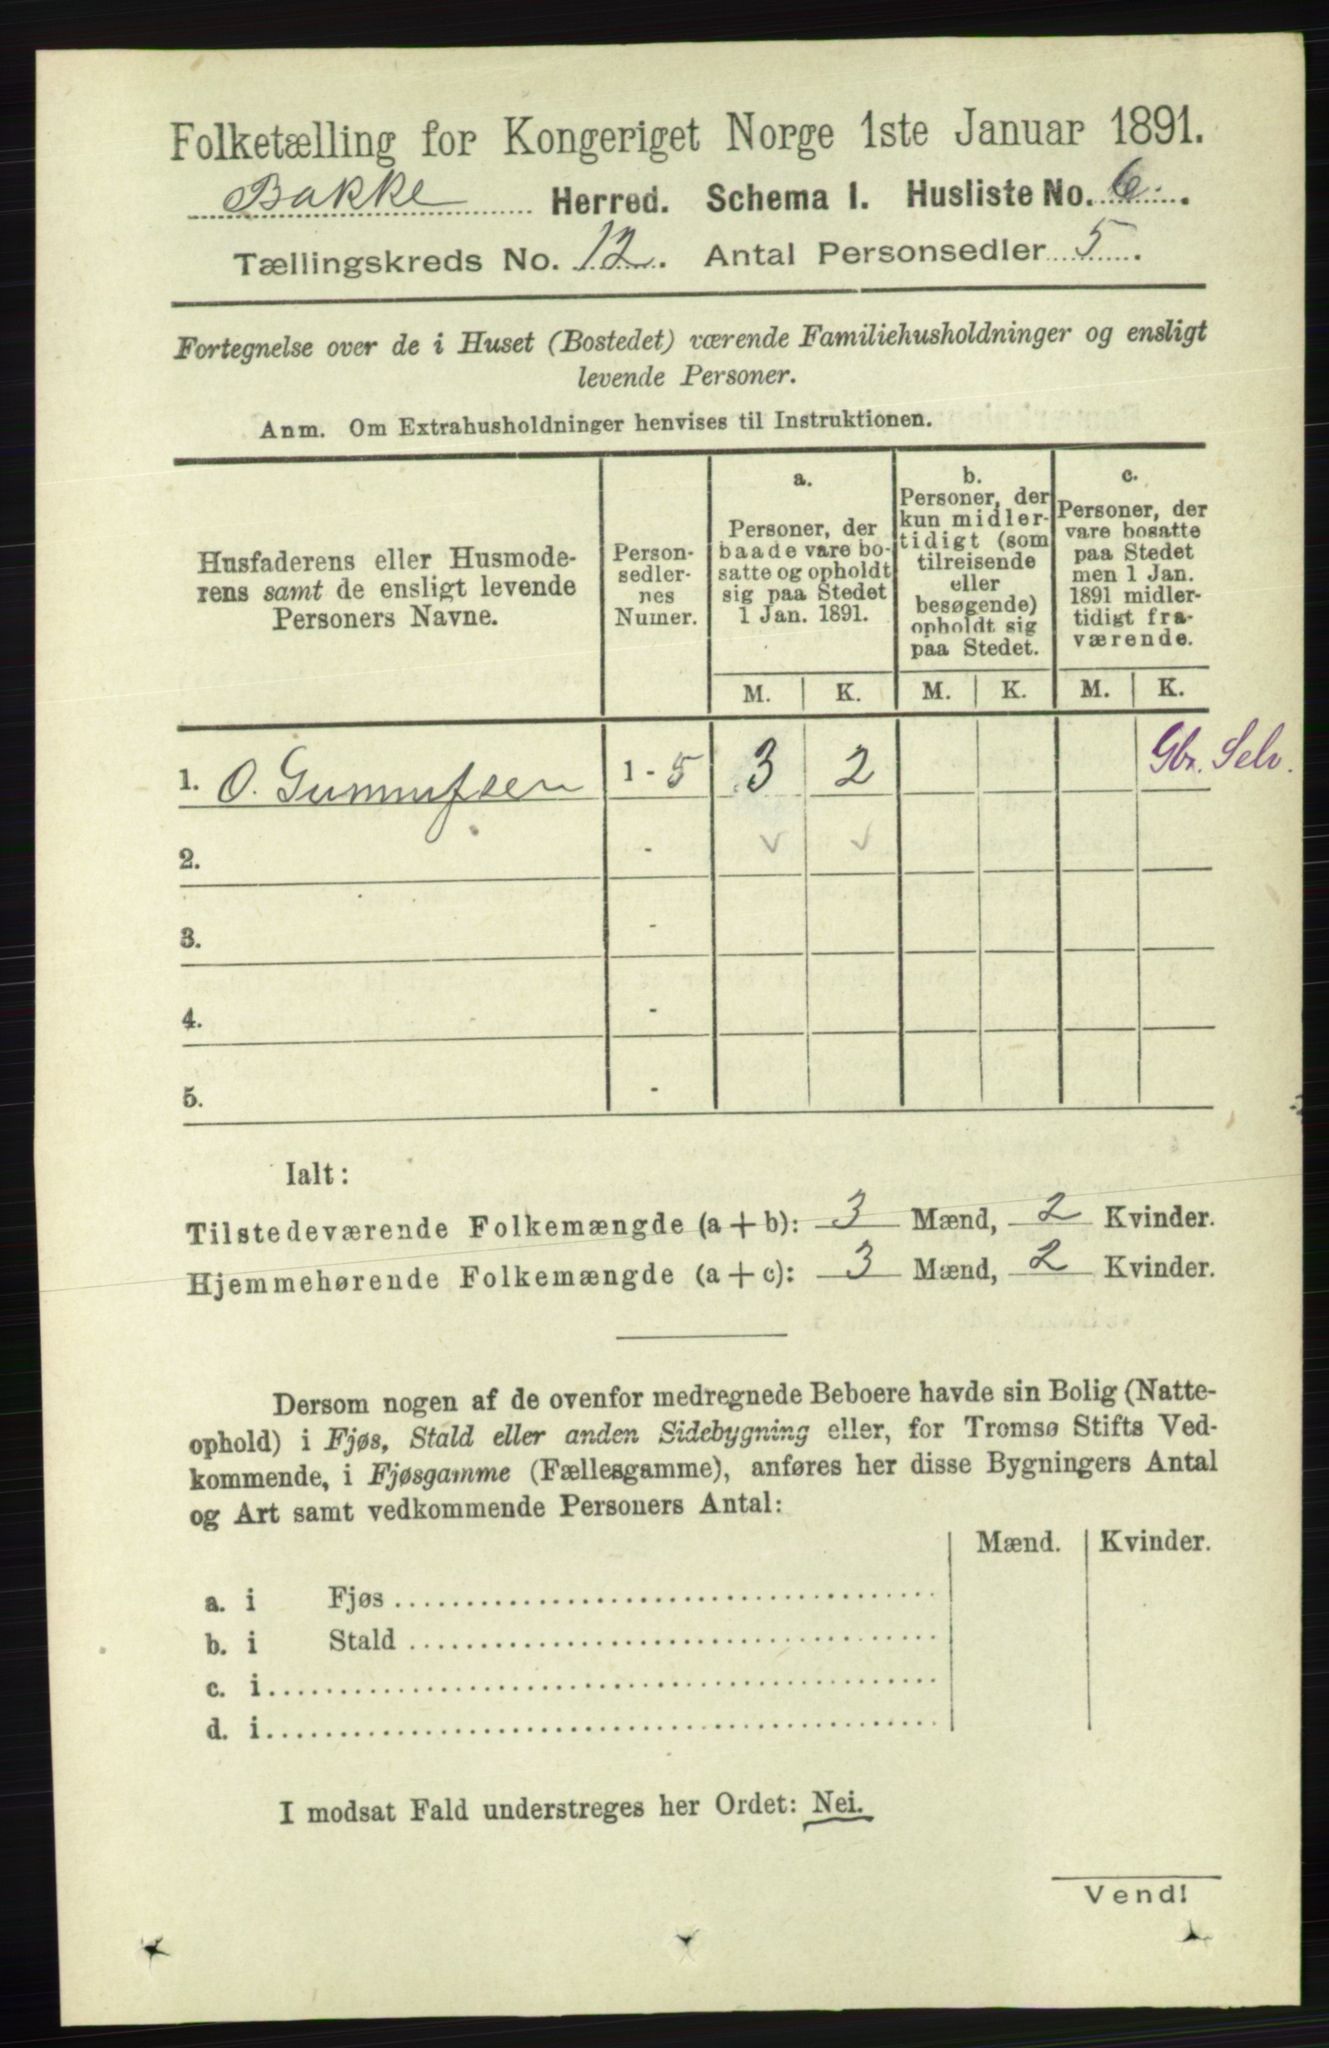 Folketælling for Kongeriget Norge 1ste Januar 1891.
Bakke Herred. Schema I. Husliste No. 6.
Tællingskreds No. 12. Antal Personsedler 5.
Fortegnelse over de i Huset (Bostedet) værende Familiehusholdninger og ensligt
levende Personer.
Anm. Om Extrahusholdninger henvises til Instruktionen.
Husfaderens eller Husmode-
rens samt de ensligt levende
Personers Navne.
Person-
sedler-
nes
Numer.
a.
Personer, der
baade vare bo-
satte og opholdt
sig paa Stedet
1 Jan. 1891.
b.
Personer, der
kun midler-
tidigt (som
tilreisende
eller
besøgende)
opholdt sig
paa Stedet.
c.
Personer, der
vare bosatte
paa Stedet
men 1 Jan.
1891 midler-
tidigt fra-
værende.
M. K. M. K. M. K.
1. O. Gunnufsen 1 - 5 3 2 Gbr. Selv.
2. -
3. -
4. -
5. -
Ialt:
Tilstedeværende Folkemængde (a + b): 3 Mænd, 2 Kvinder.
Hjemmehørende Folkemængde (a + c): 3 Mænd, 2 Kvinder.
Dersom nogen af de ovenfor medregnede Beboere havde sin Bolig (Natte-
ophold) i Fjøs, Stald eller anden Sidebygning eller, for Tromsø Stifts Ved-
kommende, i Fjøsgamme (Fællesgamme), anføres her disse Bygningers Antal
og Art samt vedkommende Personers Antal:
Mænd. Kvinder.
a. i Fjøs
b. i Stald
c. i
d. i
I modsat Fald understreges her Ordet: Nei.
Vend!